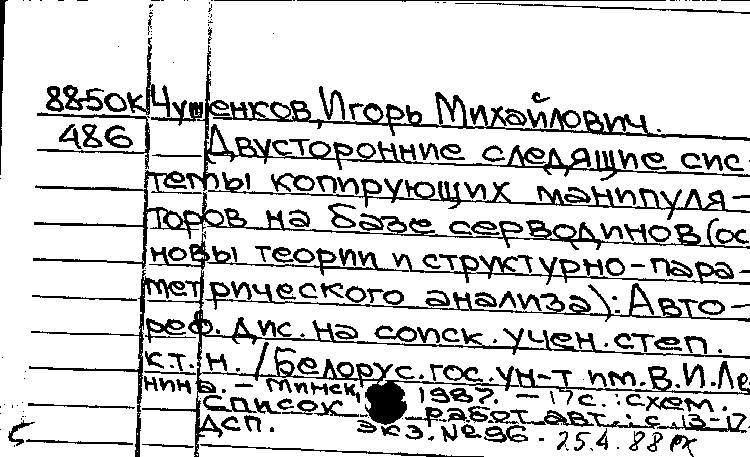 88-50К Чушенков, Игорь Михайлович.
486 Двусторонние следящие сис-
темы копирующих манипуля-
торов на базе серводинов (ос
новы теории и структурно-пара-
метрического анализа): Авто-
реф. дис. на соиск. учен. степ.
к.т.н. / Белорус. гос. ун-т им. В.И. Ле
нина. - Минск, 1987. - 17 с. : схем.
Список работ авт.: с. 13-17
ДСП. экз. № 96. 25.4.88